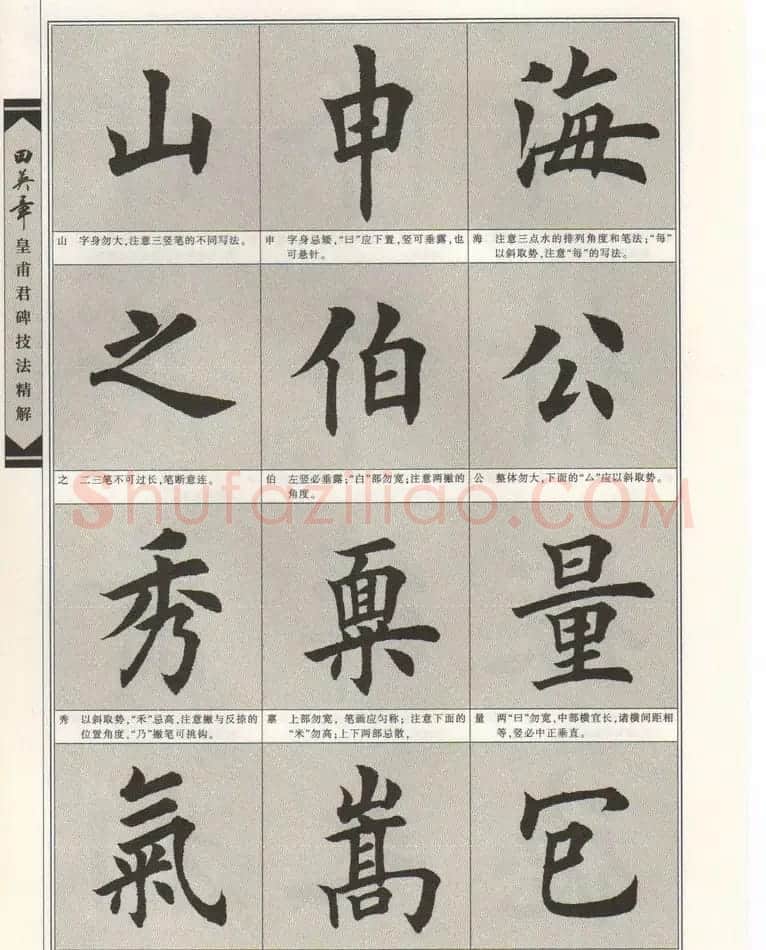 田英章
皇甫君碑技法精解
山 申 海
山 字身勿大,注意三竖笔的不同写法。
申 字身忌矮,“日”应下置,竖可垂露,也
可悬针。
海 注意三点水的排列角度和笔法;“每”
以斜取势,注意“每”的写法。
之 伯 公
之 二三笔不可过长,笔断意连。
伯 左竖必垂露;“白”部勿宽;注意两撇的
角度。
公 整体勿大,下面的“厶”应以斜取势。
Shufaziliao.COM
秀 量
秀 以斜取势,“禾”忌高,注意撇与反捺的
位置角度,“乃”撇笔可挑钩。
上部勿宽,笔画应匀称;注意下面的
“米”勿高;上下两部忌散,
量 两“日”勿宽,中部横宜长,诸横间距相
等,竖必中正垂直。
氣 嵩 包